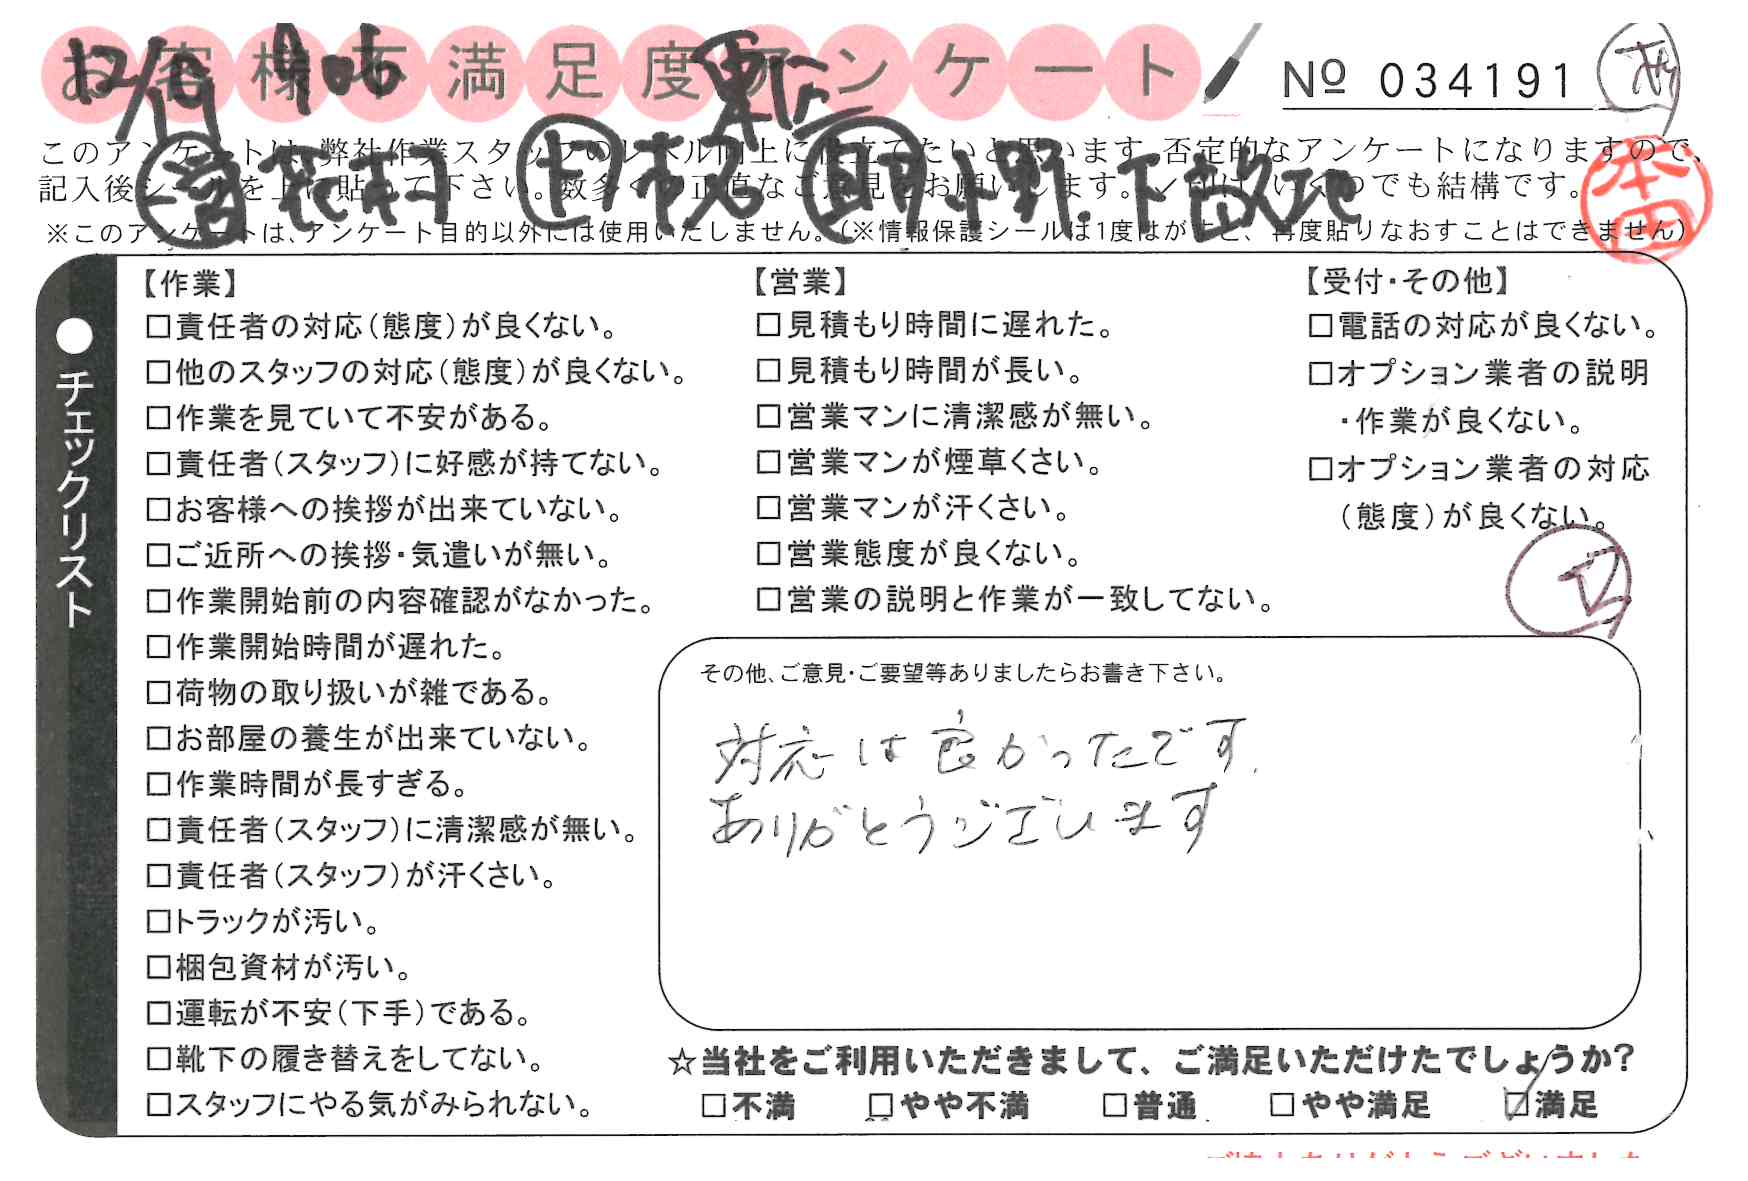 お客様不満足度アンケート
Nº 034191
このアンケートは、弊社作業スタッフのレベル向上に役立てたいと思います。否定的なアンケートになりますので、
記入後シールを上に貼って下さい。数多くの正直なご意見をお願いします。✓印は、いくつでも結構です。
※このアンケートは、アンケート目的以外には使用いたしません。(※情報保護シールは1度はがすと、再度貼りなおすことはできません)
本田
●チェックリスト
【作業】
□責任者の対応(態度)が良くない。
□他のスタッフの対応(態度)が良くない。
□作業を見ていて不安がある。
□責任者(スタッフ)に好感が持てない。
□お客様への挨拶が出来ていない。
□ご近所への挨拶・気遣いが無い。
□作業開始前の内容確認がなかった。
□作業開始時間が遅れた。
□荷物の取り扱いが雑である。
□お部屋の養生が出来ていない。
□作業時間が長すぎる。
□責任者(スタッフ)に清潔感が無い。
□責任者(スタッフ)が汗くさい。
□トラックが汚い。
□梱包資材が汚い。
□運転が不安(下手)である。
□靴下の履き替えをしてない。
□スタッフにやる気がみられない。
【営業】
□見積もり時間に遅れた。
□見積もり時間が長い。
□営業マンに清潔感が無い。
□営業マンが煙草くさい。
□営業マンが汗くさい。
□営業態度が良くない。
□営業の説明と作業が一致してない。
【受付・その他】
□電話の対応が良くない。
□オプション業者の説明
・作業が良くない。
□オプション業者の対応
(態度)が良くない。
その他、ご意見・ご要望等ありましたらお書き下さい。
対応は良かったです.
ありがとうございます
☆当社をご利用いただきまして、ご満足いただけたでしょうか?
□不満 □やや不満 □普通 □やや満足 ☑満足